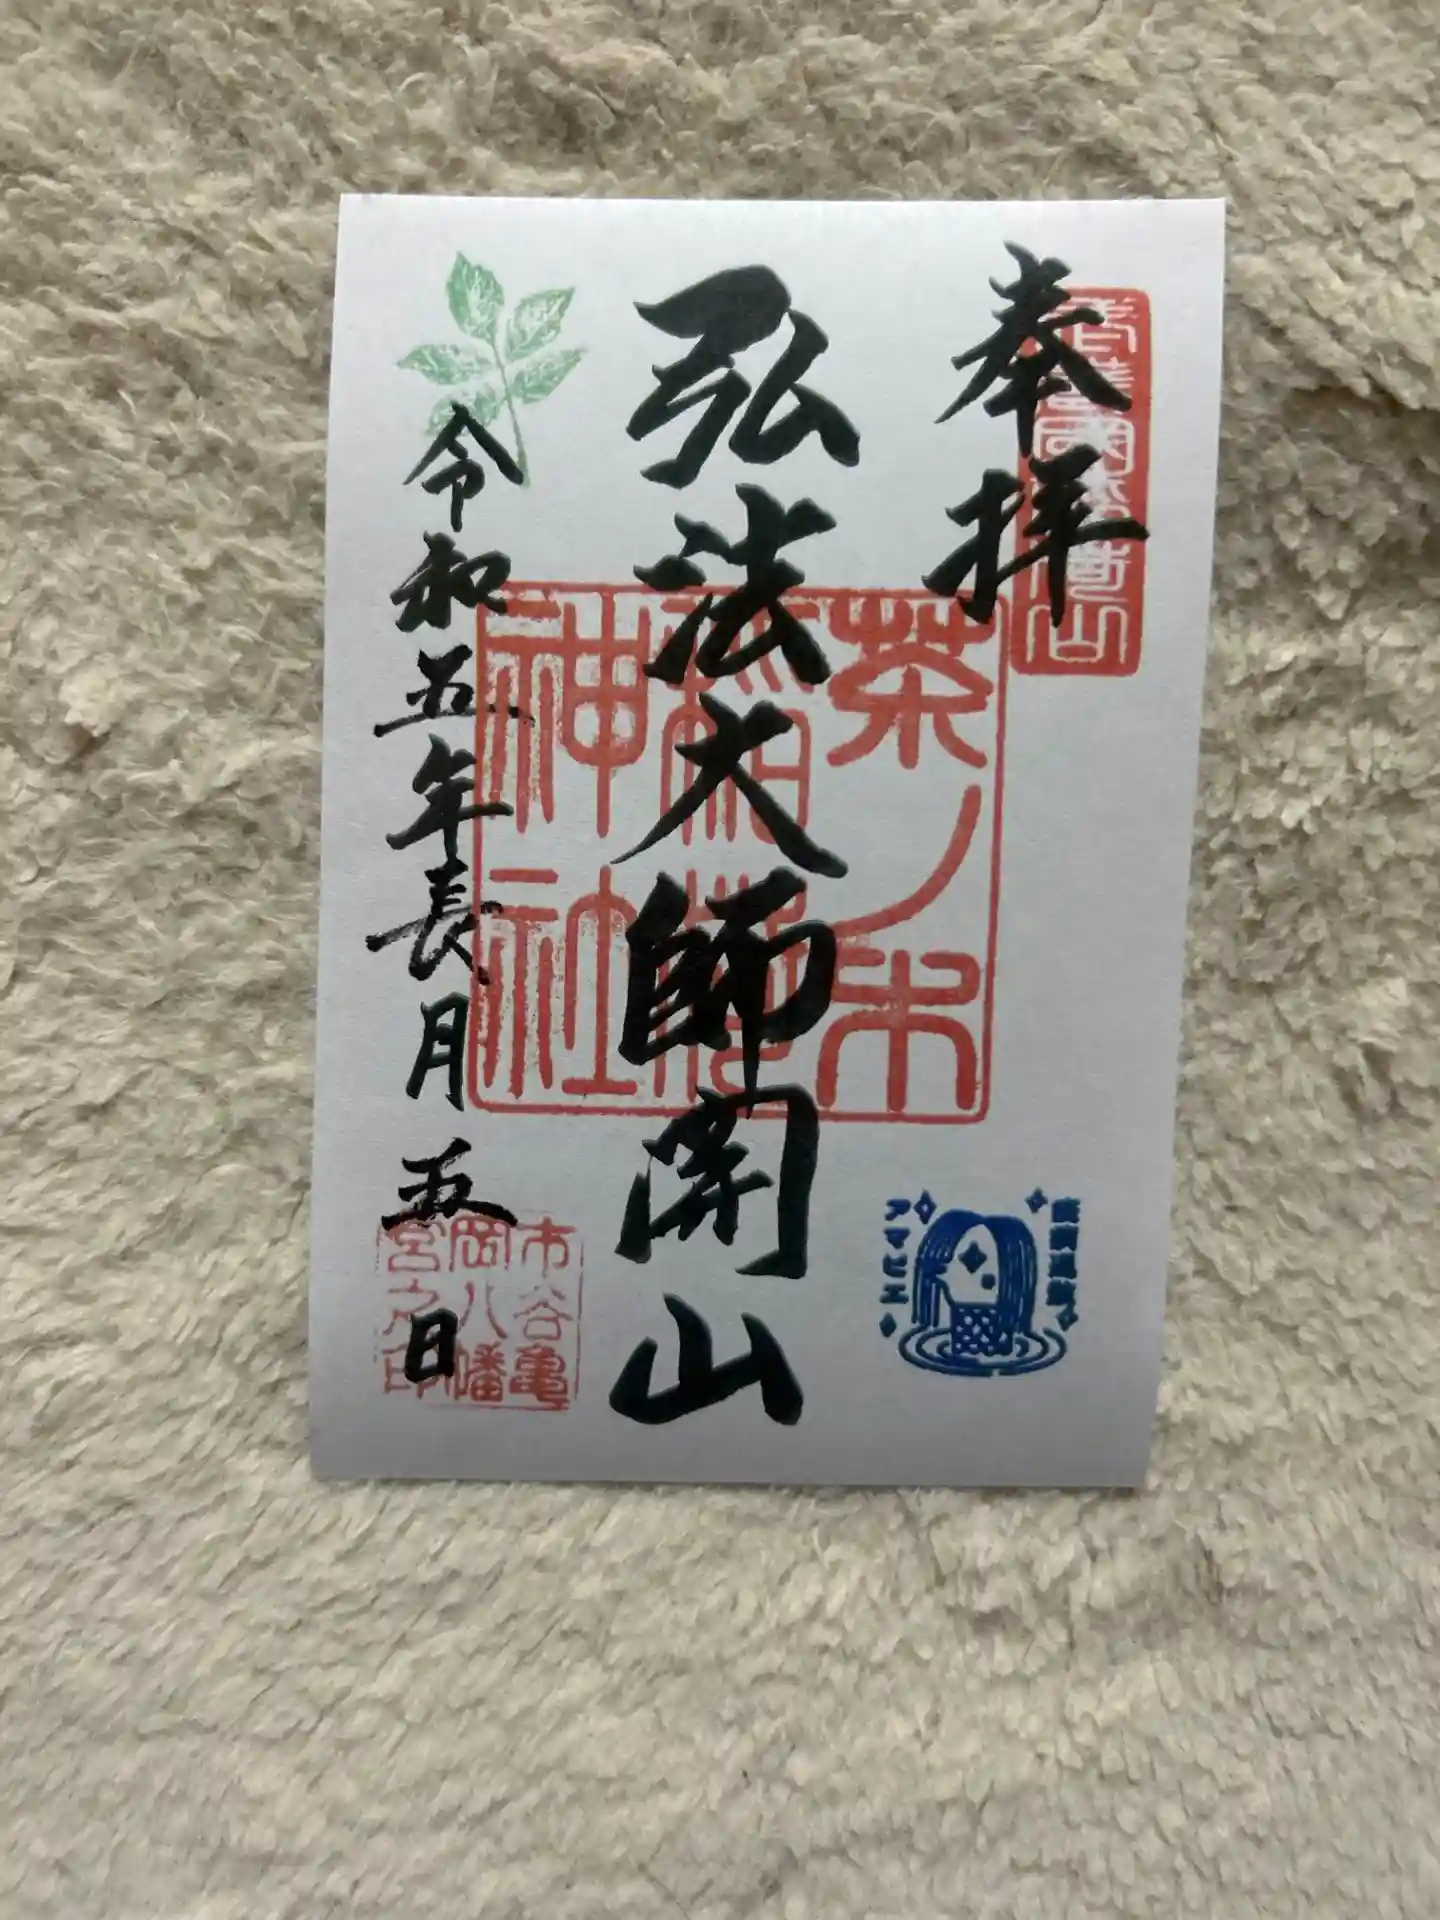 奉拝
弘法大師開山
茶ノ木
稲荷
神社
令和五年長月五日
市谷亀
岡八幡
宮之印
アマビエ